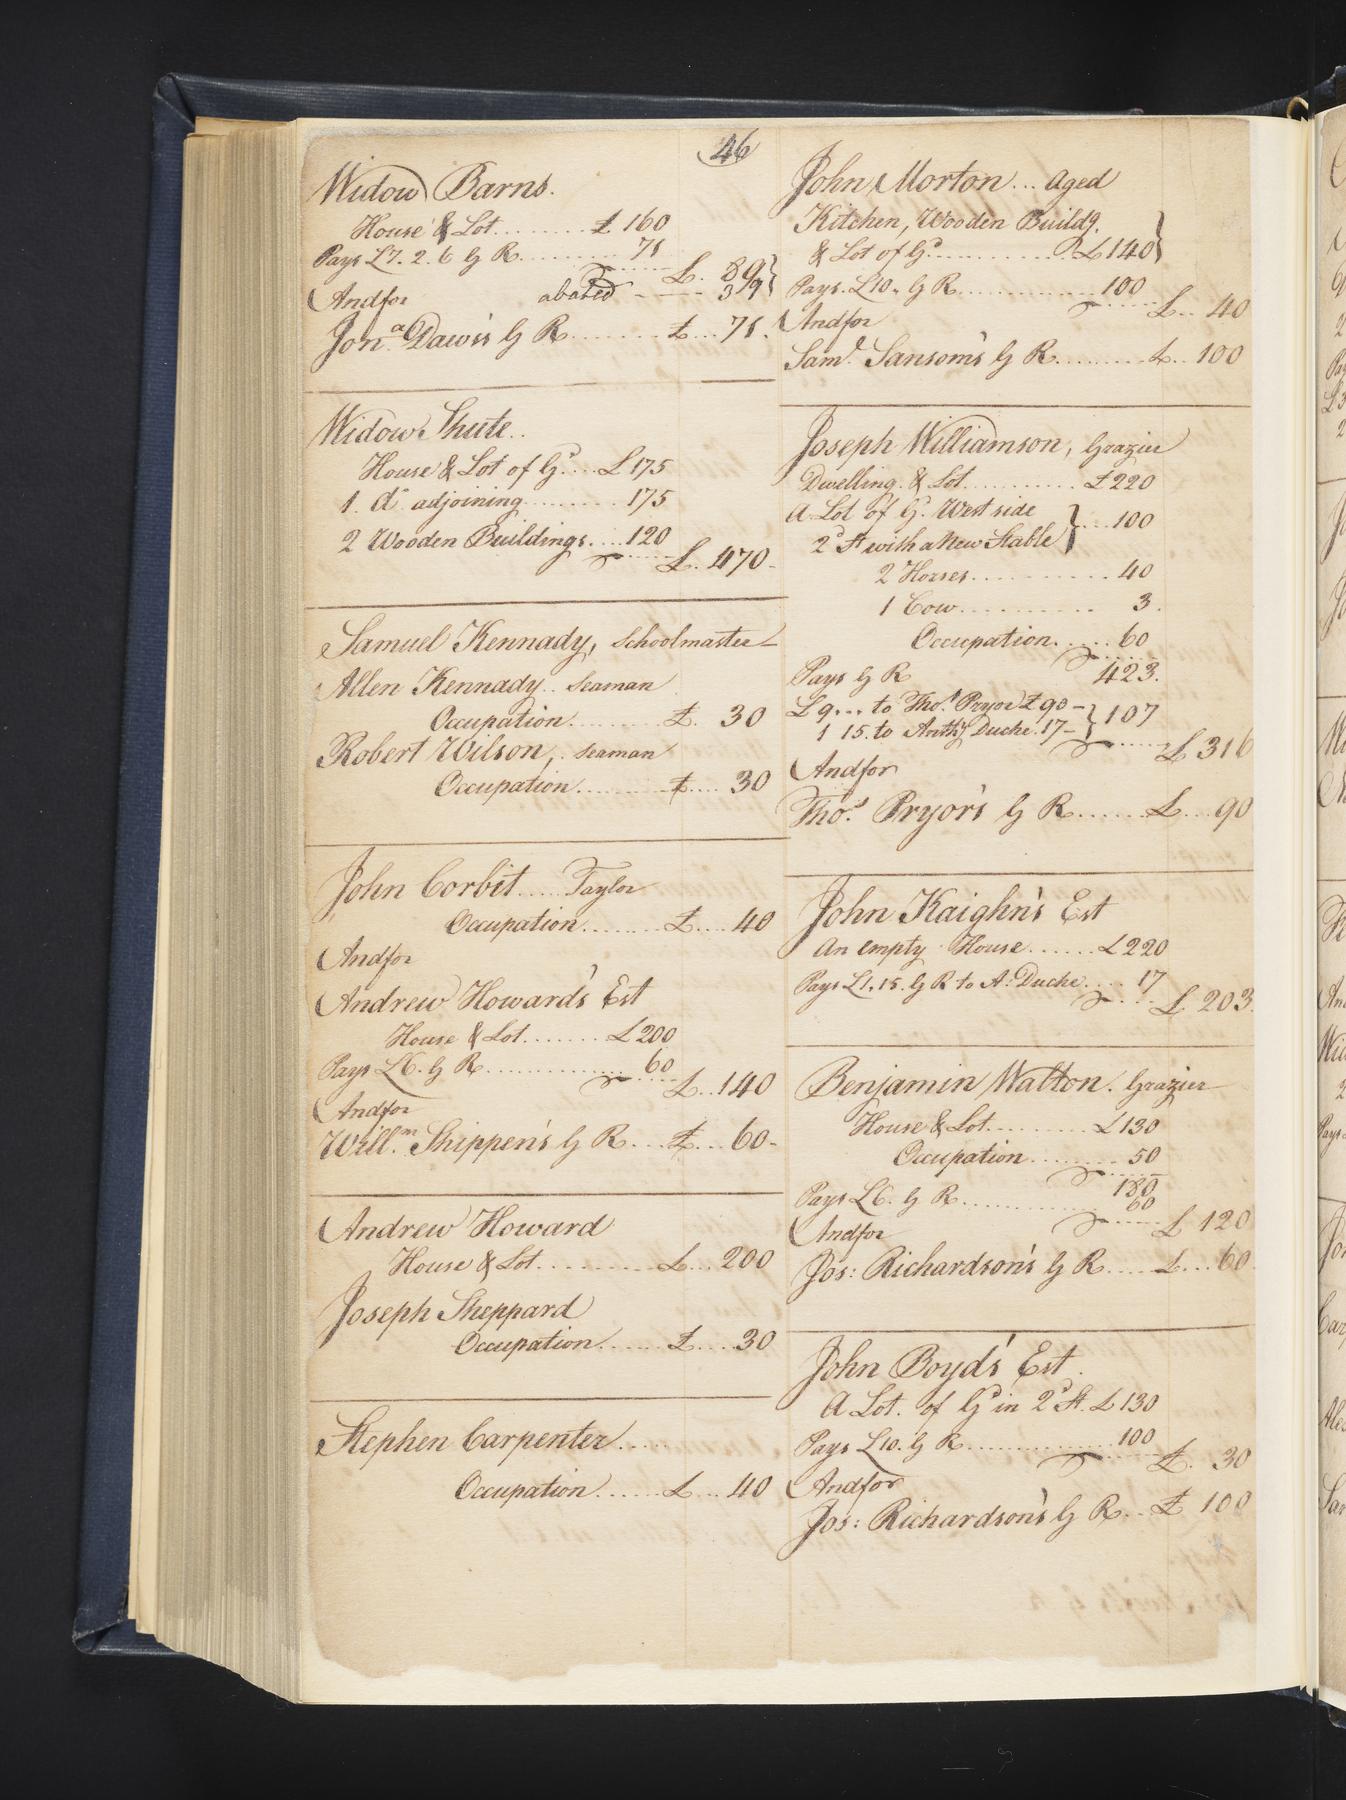 46
Widow Barns.
House & Lot......... £ 160
Pays £7. 2. 6 G R.......... 71
£. 89
Andfor abated - - - 39
Jonª. Daws's G R........ £... 71.
Widow Shute..
House & Lot of Gd.... £ 175
1. do adjoining......... 175
2 Wooden Buildings.... 120
£. 470-
Samuel Kennady, Schoolmaster
Allen Kennady.. Seaman
Occupation......... £. 30
Robert Wilson,.. Seaman
Occupation......... £.... 30
John Corbit..... Taylor
Occupation........ £.... 40
Andfor
Andrew Howard's Est
House & Lot....... £ 200
Pays £6. G R............... 60
£.. 140
Andfor
Willm. Shippen's G R... £... 60-
Andrew Howard
House & Lot.......... £... 200
Joseph Sheppard
Occupation...... £.... 30
Stephen Carpenter.....
Occupation...... £... 40
John Morton... Aged
Kitchen, Wooden Buildg.
& Lot of Gd............ £ 140
Pays. £10.. G R............ 100
£.. 40
Andfor
Saml. Sansom's G R......... £.. 100
Joseph Williamson, Grazier
Dwelling. & Lot........... £ 220
A Lot of Gd. West side
2d St with a New Stable .... 100
2 Horses.......... 40
1 Cow.......... 3.
Occupation...... 60
423.
Pays G R
£ 9... to Thos. Pryor £ 90-
1 15. to Anthy Duche. 17- 107
£ 316
Andfor
Thos. Pryor's G R...... £... 90
John Kaighn's Est
An empty House...... £ 220
Pays £1. 15. G R to A: Duche.... 17
£ 203.
Benjamin Walton. Grazier
House & Lot......... £ 130
Occupation........ 50
180
Pays £6. G R............ 60
£ 120
Andfor
Jos: Richardson's G R..... £... 60.
John Boyd's Est.
A Lot. of Gd in 2d St. £ 130
Pays £10. G R............ 100
£. 30
Andfor
Jos: Richardson's G R... £ 100